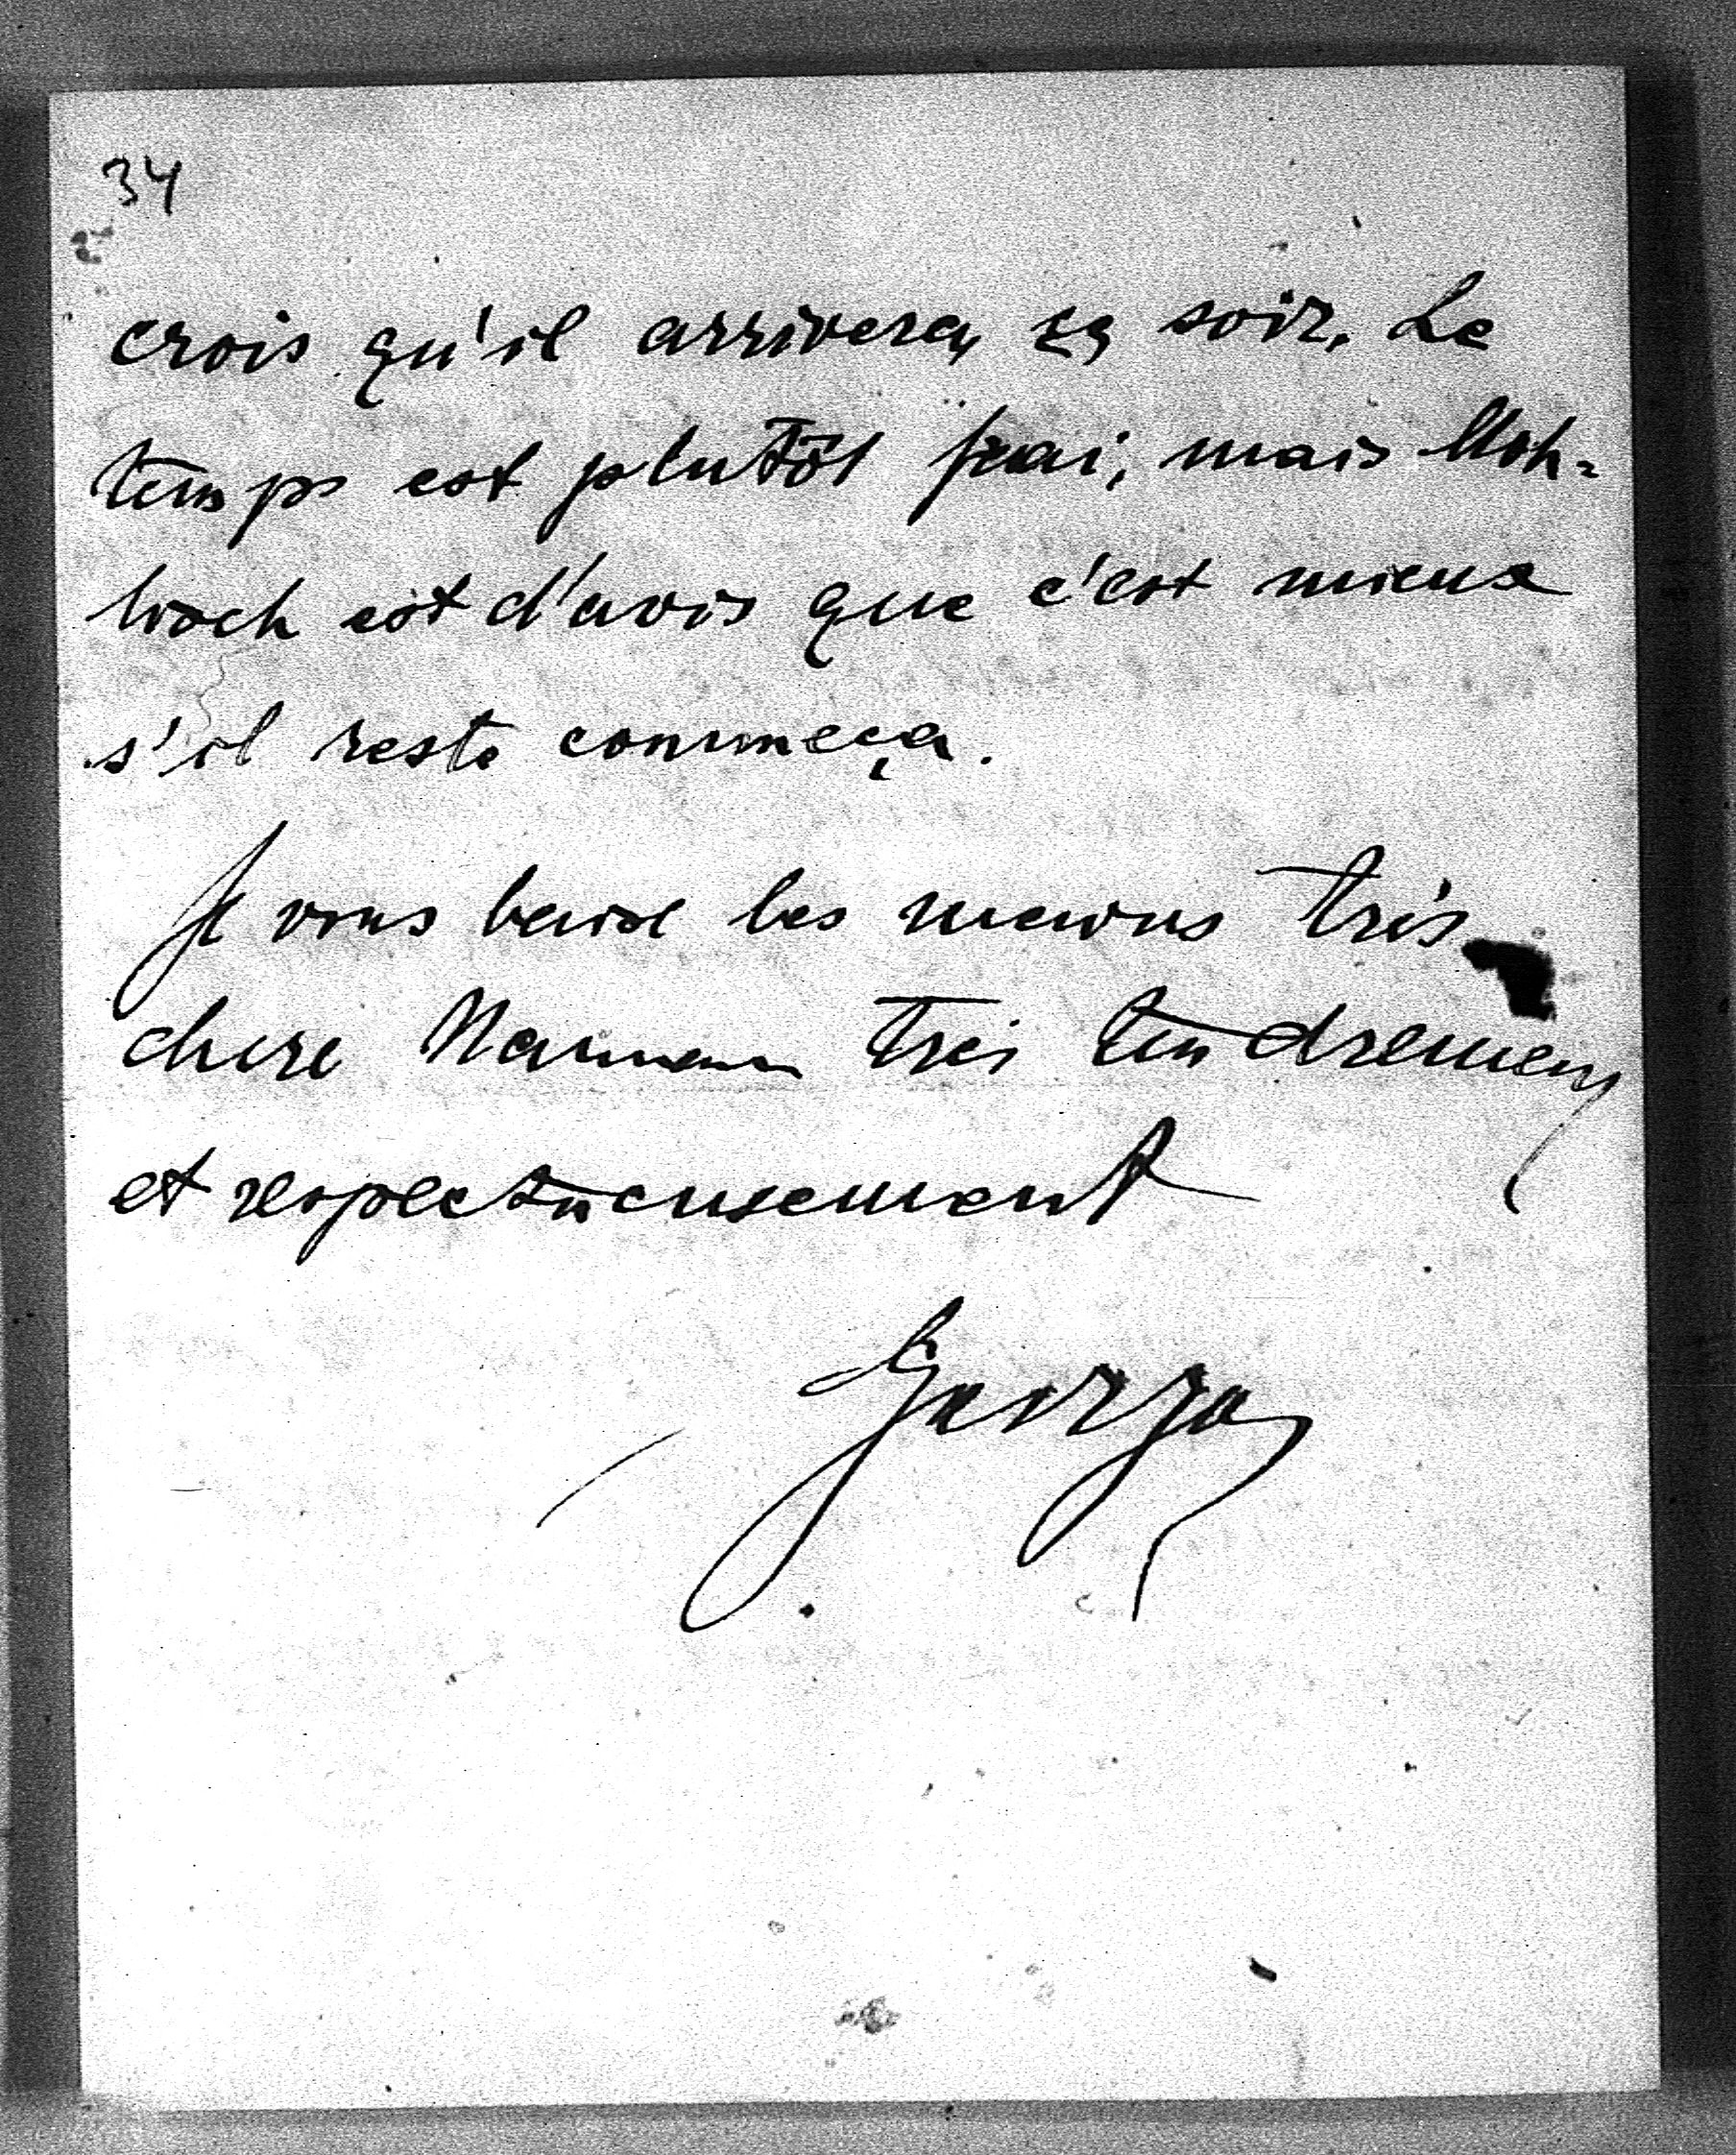 34
crois qu'il arrivera ce soir. Le
temps est plutôt frai, mais
est d'avis que c'est mieux
s'il reste comme ça.
Je vous baise les mains très
chere Maman très tendrement
et respectueusement
George